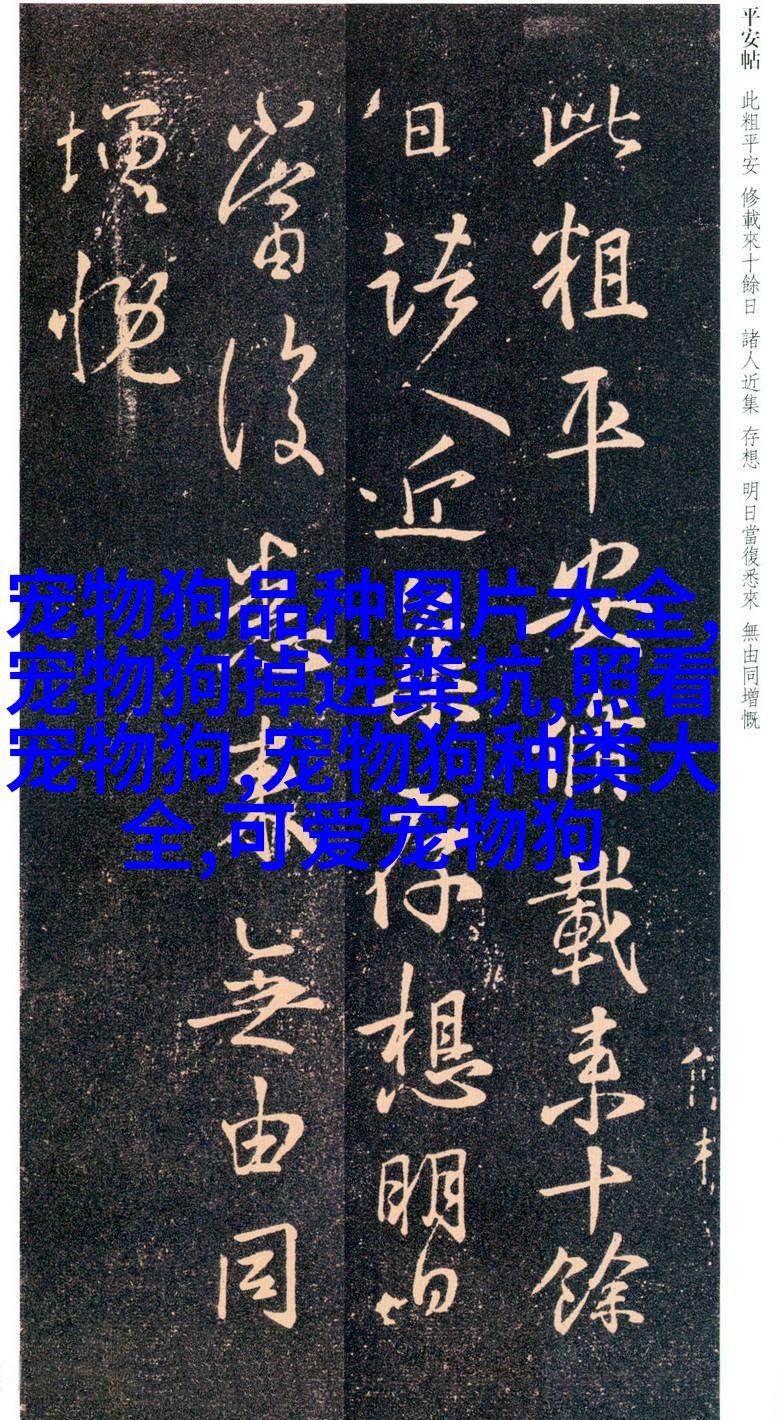 平安帖 此粗平安 修載來十餘日 諸人近集 存想 明日當復悉來 無由同增慨
此粗平安修載来十餘
日諸人近集存想明日
當復悉来無由同
增慨
宠物狗品种图片大全,
宠物狗掉进粪坑,照看
宠物狗,宠物狗种类大
全,可爱宠物狗